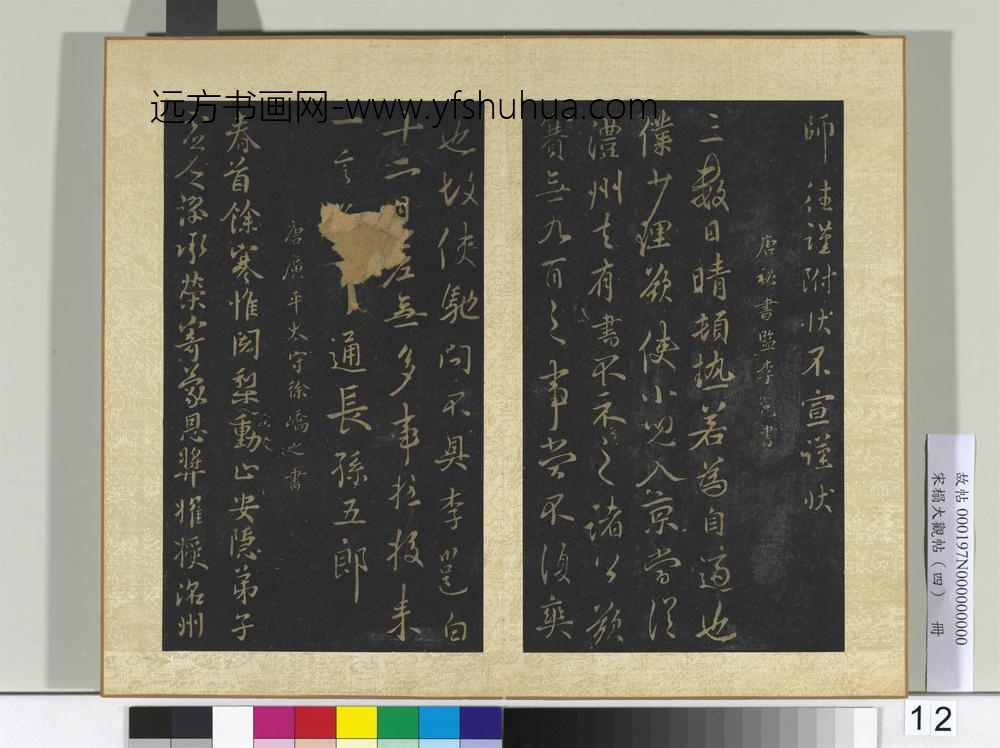 远方书画网-www.yfshuhua.com
師 謹附狀不宣謹狀
唐秘書監李邕書
三數日晴頓熱若為自適也
僕少理欲使小兒入京當從
澧州去有書不示之諸公頗
費無九百之事當不復爽
也故使馳問不具李邕白
十二日 無多事 來
一言 通長孫五郎
唐廣平太守徐嶠之書
春首餘寒惟闍梨動止安隱弟子
虛乏謬承榮寄蒙恩獎擢授洺州
故帖000197N000000000
宋榻大觀帖(四) 冊
12